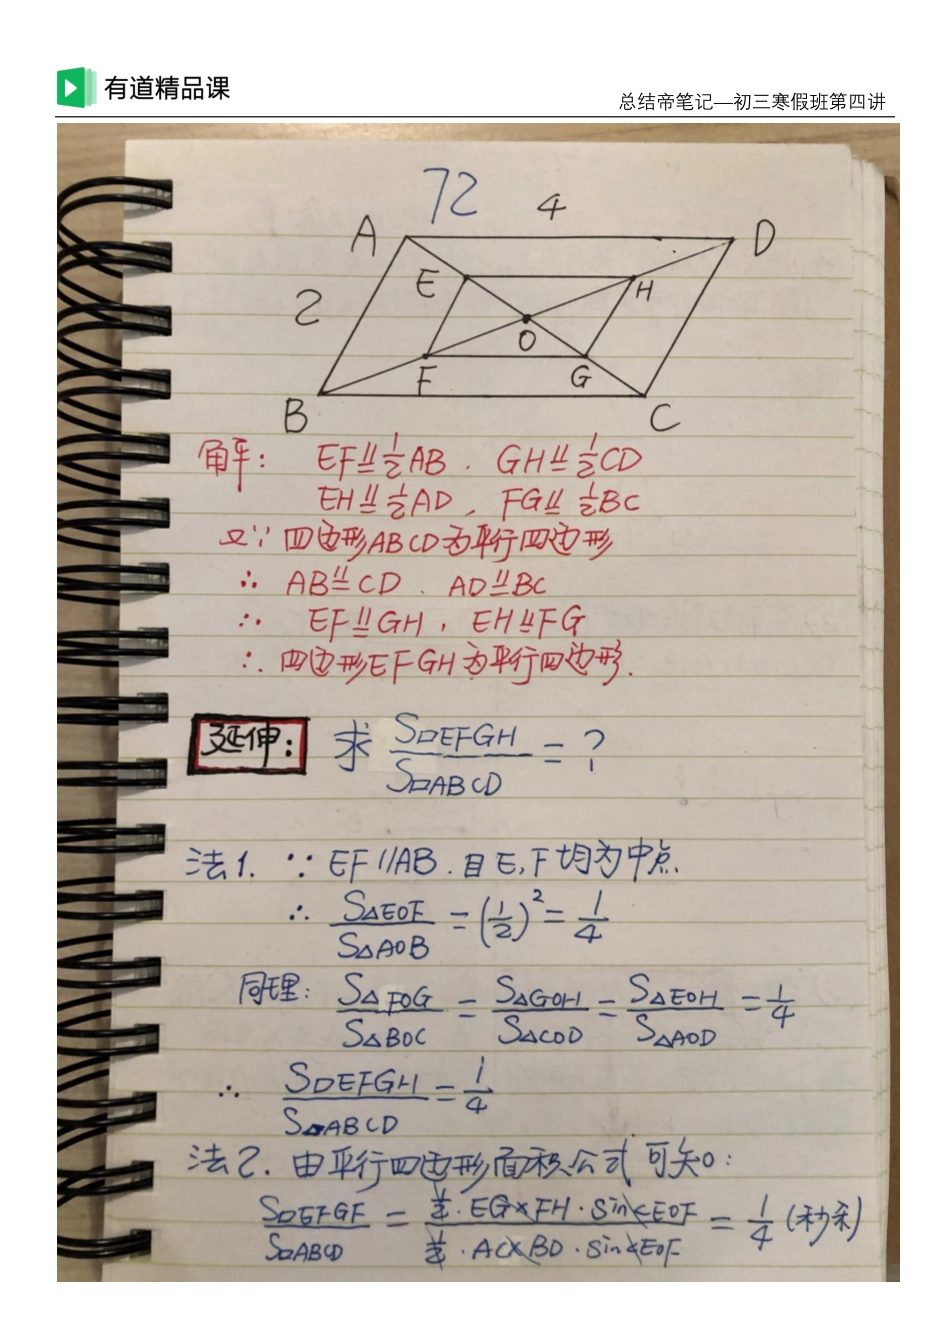 有道精品课
总结帝笔记—初三寒假班第四讲
72
4
A
D
E
H
2
O
F
G
B
C
解: EF∥=1/2AB. GH∥=1/2CD
EH∥=1/2AD, FG∥=1/2BC
又∵四边形ABCD为平行四边形
∴ AB∥=CD. AD∥=BC
∴ EF∥=GH, EH∥=FG
∴. 四边形EFGH为平行四边形.
延伸: 求 S▱EFGH/S▱ABCD = ?
法1. ∵ EF//AB. 且E,F均为中点.
∴ S△EOF/S△AOB = (1/2)² = 1/4
同理: S△FOG/S△BOC = S△GOH/S△COD = S△EOH/S△AOD = 1/4
∴ S▱EFGH/S▱ABCD = 1/4
法2. 由平行四边形面积公式可知:
S▱EFGF/S▱ABCD = 1/2·EG×FH·sin∠EOF / 1/2·AC×BD·sin∠EOF = 1/4 (秒杀)